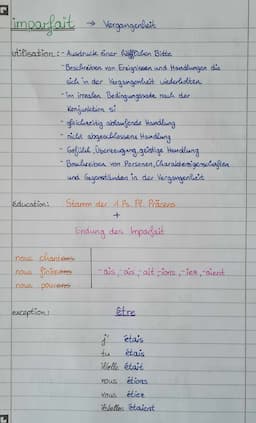 imparfait → Vergangenheit
utilisation: - Ausdruck einer höfflichen Bitte
- Beschreiben von Ereignissen und Handlungen die
sich in der Vergangenheit wiederholten
- im irrealen Bedingungssatz nach der
Konjunktion si
- gleichzeitig ablaufende Handlung
- nicht abgeschlossene Handlung
- Gefühl, Überzeugung, geistige Handlung
- Beschreiben von Personen, Charaktereigenschaften
und Gegenständen in der Vergangenheit
éducation: Stamm der 1. Ps. Pl. Präsens
+
Endung des Imparfait
nous chantons
nous finissons -ais, -ais, -ait, -ions, -iez, -aient
nous
exception: être
j' étais
tu étais
il/elle était
nous étions
vous étiez
ils/elles étaient